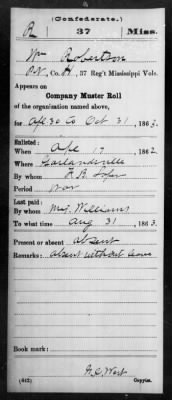 (Confederate.)
R 37 Miss.
Wm Robertson
Pvt, Co. H, 37 Reg't Mississippi Vols.
Appears on
Company Muster Roll
of the organization named above,
for Apl 30 to Oct 31, 1863.
Enlisted:
When Apl 17, 1862.
Where Garlandsville
By whom F. B. Loper
Period War
Last paid:
By whom Maj. Williams
To what time Aug 31, 1863.
Present or absent absent
Remarks: absent without leave
Book mark:
West
(642) Copyist.